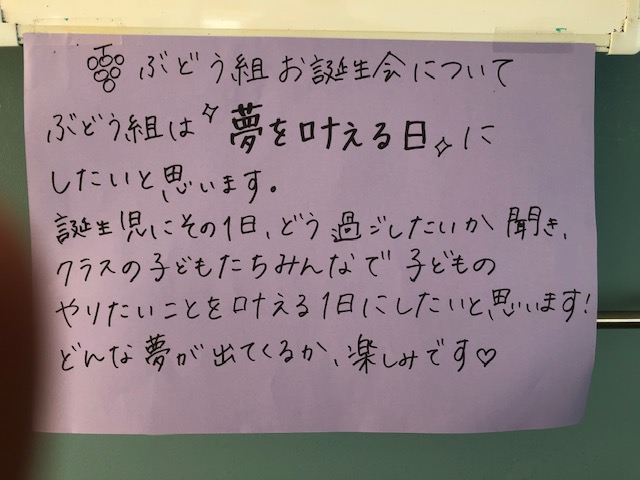 ぶどう組お誕生会について
ぶどう組は✧夢を叶える日✧に
したいと思います。
誕生児にその1日、どう過ごしたいか聞き、
クラスの子どもたちみんなで子どもの
やりたいことを叶える1日にしたいと思います!
どんな夢が出てくるか、楽しみです♡